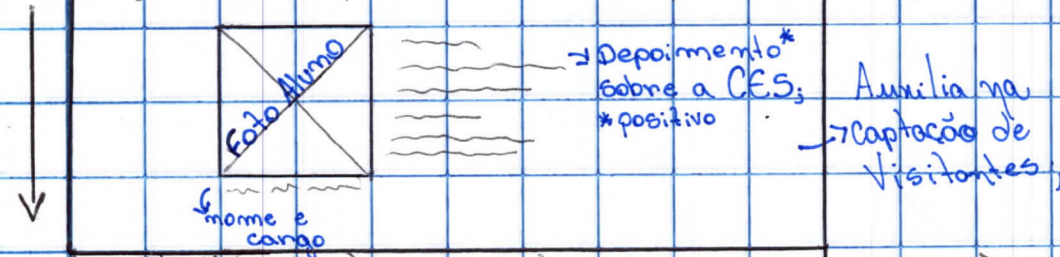 Foto Aluno
nome e
cargo
→ Depoimento*
sobre a CES;
*positivo
Auxilia na
→ Captação de
Visitantes;